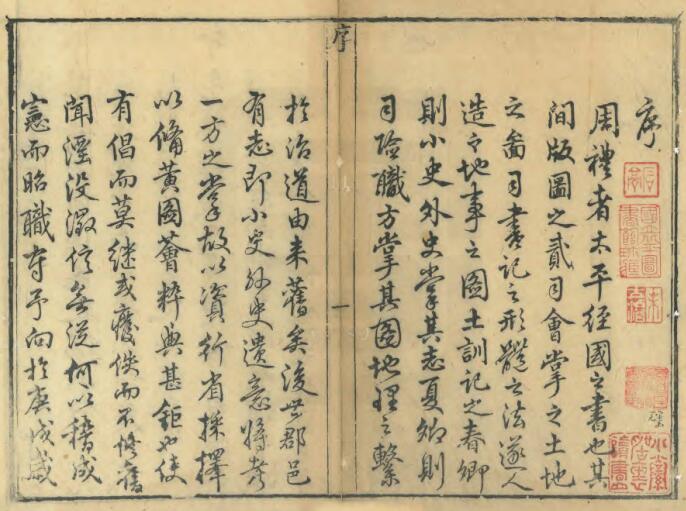 序
周禮者太平經國之書也其
間版圖之貳司會掌之土地
之圖司書記之形體之法遂人
造之地事之圖土訓記之春卿
則小史外史掌其志夏卿則
司險職方掌其圖地理之繫
於治道由来舊矣後世郡邑
有志即小史外史遺意將考
一方之掌故以資行省採擇
以備黄圖薈粹典甚鉅也使
有倡而莫继或廢佚而不修舊
聞湮没徵信無從何以稽成
憲而昭職守予向於庚戌歲
序
一